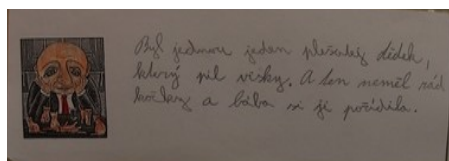 Byl jednou jeden plešatej dědek,
který pil visky. A ten neměl rád
kočky a bába si je pořídila.